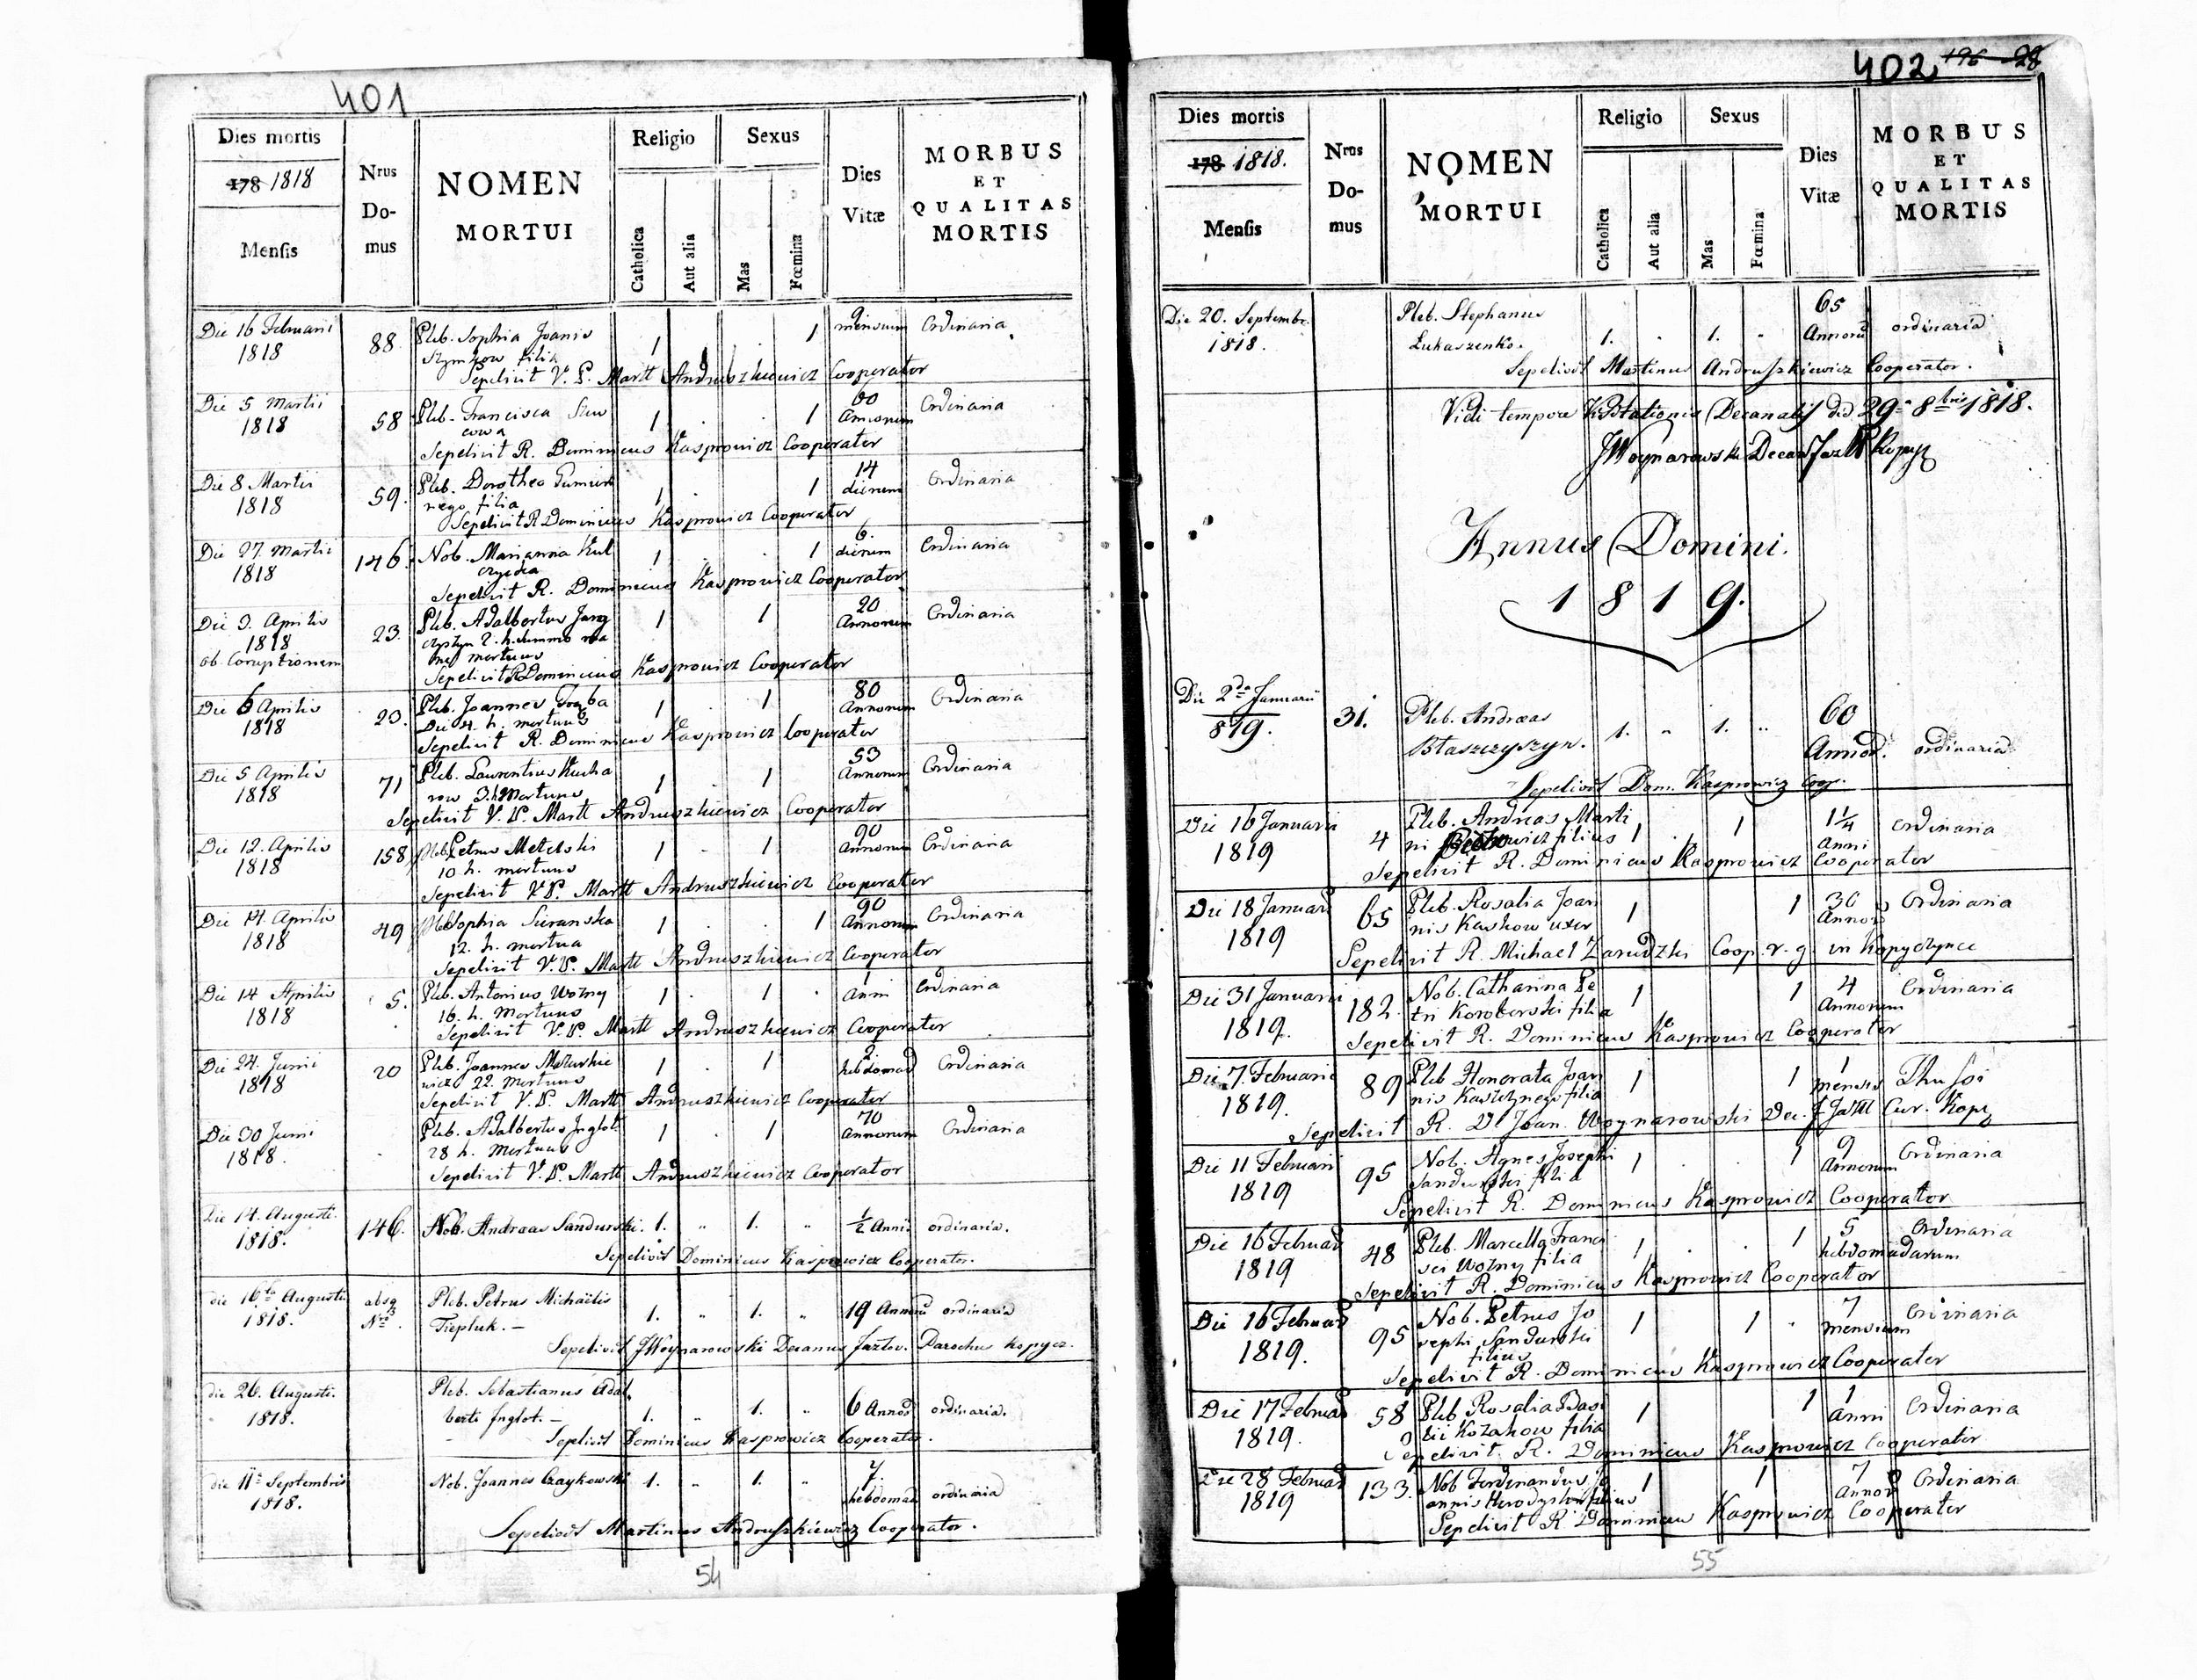 401
Dies mortis
178 1818
Mensis
Nrus
Do-
mus
NOMEN
MORTUI
Religio
Catholica
Aut alia
Sexus
Mas
Fœmina
Dies
Vitæ
MORBUS
ET
QUALITAS
MORTIS
Die 16 Februarii 88 Pleb. Sophia Joanis 1 . . 1 9 mensium Ordinaria
1818 Szymkow filia
Sepelivit V. P. Martt Andruszkiewicz Cooperator
Die 5 Martii 58 Pleb. Francisca 1 . . 1 60 Annorum Ordinaria
1818
Sepelivit R. Dominicus Kasprowicz Cooperator
Die 8 Martii 59. Pleb. Dorothea 1 . 1 14 dierum Ordinaria
1818 nego filia
Sepelivit R Dominicus Kasprowicz Cooperator
Die 27 Martii 146. Nob. Marianna Kul 1 . . 1 6. dierum Ordinaria
1818 czycka
Sepelivit R. Dominicus Kasprowicz Cooperator
Die 3. Aprilis 23. Pleb. Adalbertus 1 1 20 Annorum Ordinaria
1818
ob. Coruptionem mortuus
Sepelivit R Dominicus Kasprowicz Cooperator
Die 6 Aprilis 23. Pleb. Joannes 1 . 1 80 Annorum Ordinaria
1818 h. mortuus
Sepelivit R. Dominicus Kasprowicz Cooperator
Die 5 Aprilis 71 Pleb. Laurentius Kucha 1 1 53 Annorum Ordinaria
1818 row 3. h Mortuus
Sepelivit V. P. Martt Andruszkiewicz Cooperator
Die 12. Aprilis 158 Pleb Petrus Metelski 1 . 1 90 Annorum Ordinaria
1818 10 h. mortuus
Sepelivit V. P. Martt Andruszkiewicz Cooperator
Die 14. Aprilis 49 Pleb Sophia 1 . . 1 90 Annorum Ordinaria
1818 12. h. mortua
Sepelivit V. P. Martt Andruszkiewicz Cooperator
Die 14 Aprilis 5. Pleb. Antonius Wozny 1 . 1 . 1 Anni Ordinaria
1818 16. h. Mortuus
Sepelivit V. P. Martt Andruszkiewicz Cooperator
Die 24. Junii 20 Pleb. Joannes Mazurkie 1 . 1 2 hebdomad Ordinaria
1818 wicz 22. Mortuus
Sepelivit V. P. Martt Andruszkiewicz Cooperator
Die 30 Junii Pleb. Adalbertus Inglot 1 . 1 70 Annorum Ordinaria
1818. 28 h. Mortuus
Sepelivit V. P. Martt Andruszkiewicz Cooperator
Die 14. Augusti. 146. Nob. Andreas Sandurski. 1. " 1. " ½ Anni ordinaria.
1818.
Sepelivit Dominicus Kasprowicz Cooperator.
die 16ta Augusti absq Pleb. Petrus Michaëlis 1. " 1. " 19 Annorū ordinaria
1818. Nro. Tiepluk. –
Sepelivit JWoynarowski Decanus Jazlov. Parochus kopycz.
die 26. Augusti. Pleb. Sebastianus Adal 1. " 1. " 6 Annorū ordinaria.
1818. berti Inglot. –
Sepelivit Dominicus Kasprowicz Cooperator.
die 11a Septembris Nob. Joannes Czaykowski 1. " 1. " 7. hebdomad ordinaria
1818.
Sepelivit Martinus Andruszkiewicz Cooperator.
54
402 196 28
Dies mortis
178 1818.
Mensis
Nrus
Do-
mus
NOMEN
MORTUI
Religio
Catholica
Aut alia
Sexus
Mas
Fœmina
Dies
Vitæ
MORBUS
ET
QUALITAS
MORTIS
Die 20. Septembr. Pleb. Stephanus 65
1818. Lukaszenko. 1. . 1. " Annorū ordinaria
Sepelivit Martinus Andruszkiewicz Cooperator.
Vidi tempore Visitationis Decanalis die 29a 8bris 1818.
JWoynarowski Decan Jazl P Kopycz
Annus Domini.
1819.
Die 2da Januarii 31. Pleb. Andreas 60
819. Błaszczyszyn. 1. " 1. " Annor. ordinaria
Sepelivit Dom. Kasprowicz Coop.
Die 16 Januarii 4 Pleb. Andreas Marti 1 . 1 1¼ Anni Ordinaria
1819 ni filius
Sepelivit R. Dominicus Kasprowicz Cooperator
Die 18 Januarii 65 Pleb. Rosalia Joan 1 1 30 Annor Ordinaria
1819 nis Kaskow uxor
Sepelivit R. Michael Zarudzki Coop. r. g. in Kopyczynce
Die 31 Januarii 182. Nob. Catharina Pe 1 1 4 Annorum Ordinaria
1819. tri Koroberski filia
Sepelivit R. Dominicus Kasprowicz Cooperator
Die 7. Februarii 89 Pleb Honorata Joan 1 1 1 mensis
1819. nis filia
Sepelivit R. D Joan. Woynarowski Dec. Jazl Cur. Kopy
Die 11 Februarii 95 Nob. Agnes Josephi 1 . 1 9 Annorum Ordinaria
1819 Sandurski filia
Sepelivit R. Dominicus Kasprowicz Cooperator
Die 16 Februar 48 Pleb. Marcella Franci 1 . . 1 5 hebdomadarum Ordinaria
1819 sci Wozny filia
Sepelivit R. Dominicus Kasprowicz Cooperator
Die 16 Februar 95 Nob. Petrus Jo 1 1 . 7 mensium Ordinaria
1819. sephi Sandurski
filius
Sepelivit R. Dominicus Kasprowicz Cooperator
Die 17 Februar 58 Pleb Rosalia Basi 1 1 1 Anni Ordinaria
1819. lii Kozakow filia
Sepelivit. R. Dominicus Kasprowicz Cooperator
Die 28 Februar 133. Nob Ferdinandus Jo 1 1 7 Annor Ordinaria
1819 annis filius
Sepelivit R Dominicus Kasprowicz Cooperator
55